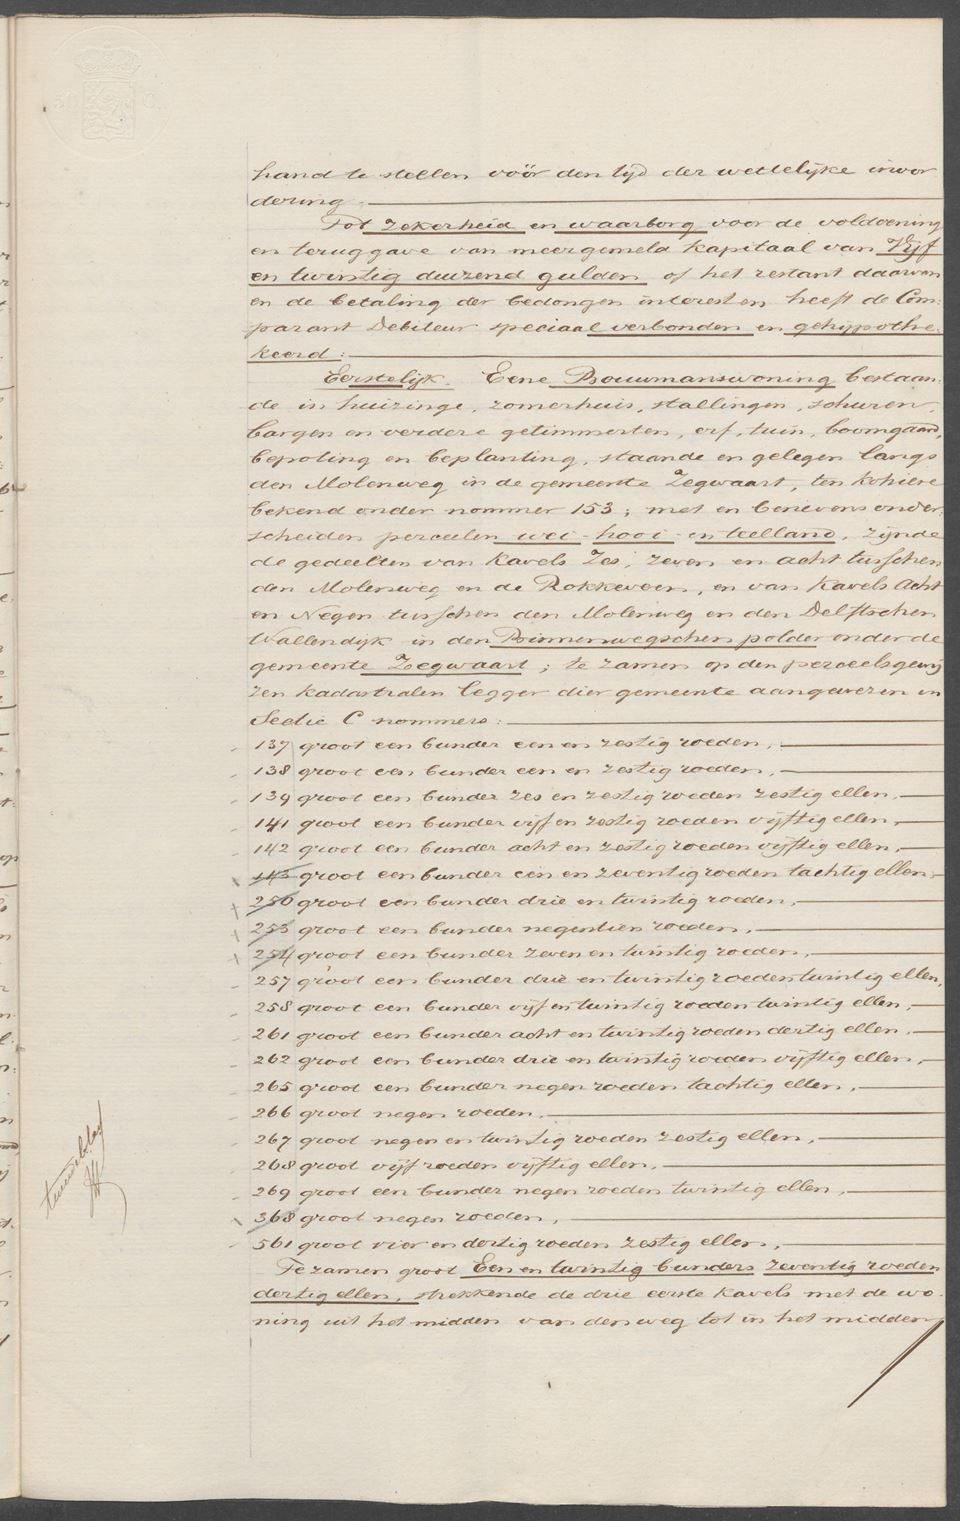 hand te stellen vóór den tijd der wettelijke invor
dering.
Tot zekerheid en waarborg voor de voldoening
en teruggave van meergemeld kapitaal van Vijf
en twintig duizend gulden of het restant daarvan
en de betaling der bedongen interesten heeft de Com:
parant Debiteur speciaal verbonden en gehypothe:
keerd:
Eerstelijk. Eene Bouwmanswoning bestaan:
de in huizinge, zomerhuis, stallingen, schuren,
bargen en verdere getimmerten, erf, tuin, boomgaard,
bepoting en beplanting, staande en gelegen langs
den Molenweg in de gemeente Zegwaart, ten kohiere
bekend onder nommer 153; met en benevens onder:
scheiden perceelen wei- hooi- en teelland, zijnde
de gedeelten van Kavels Zes, Zeven en acht tusschen
den Molenweg en de Rokkeveen, en van Kavels Acht
en Negen tusschen den Molenweg en den Delftschen
Wallendijk in den Binnenwegschen polder onder de
gemeente Zegwaart; te zamen op den perceelsgewij
zen kadastralen legger dier gemeente aangewezen in
Sectie C nommers:
137 groot een bunder een en zestig roeden,
138 groot een bunder een en zestig roeden,
139 groot een bunder zes en zestig roeden zestig ellen,
141 groot een bunder vijf en zestig roeden vijftig ellen,
142 groot een bunder acht en zestig roeden vijftig ellen,
143 groot een bunder een en zeventig roeden tachtig ellen,
250 groot een bunder drie en twintig roeden,
253 groot een bunder negentien roeden,
254 groot een bunder zeven en twintig roeden,
257 groot een bunder drie en twintig roeden twintig ellen,
258 groot een bunder vijf en twintig roeden twintig ellen,
261 groot een bunder acht en twintig roeden dertig ellen,
262 groot een bunder drie en twintig roeden vijftig ellen,
265 groot een bunder negen roeden tachtig ellen,
266 groot negen roeden,
267 groot negen en twintig roeden zestig ellen,
268 groot vijf roeden vijftig ellen,
269 groot een bunder negen roeden twintig ellen,
368 groot negen roeden,
561 groot vier en dertig roeden zestig ellen,
Te zamen groot Een en twintig bunders zeventig roeden
dertig ellen, strekkende de drie eerste kavels met de wo:
ning uit het midden van den weg tot in het midden
tweede blad